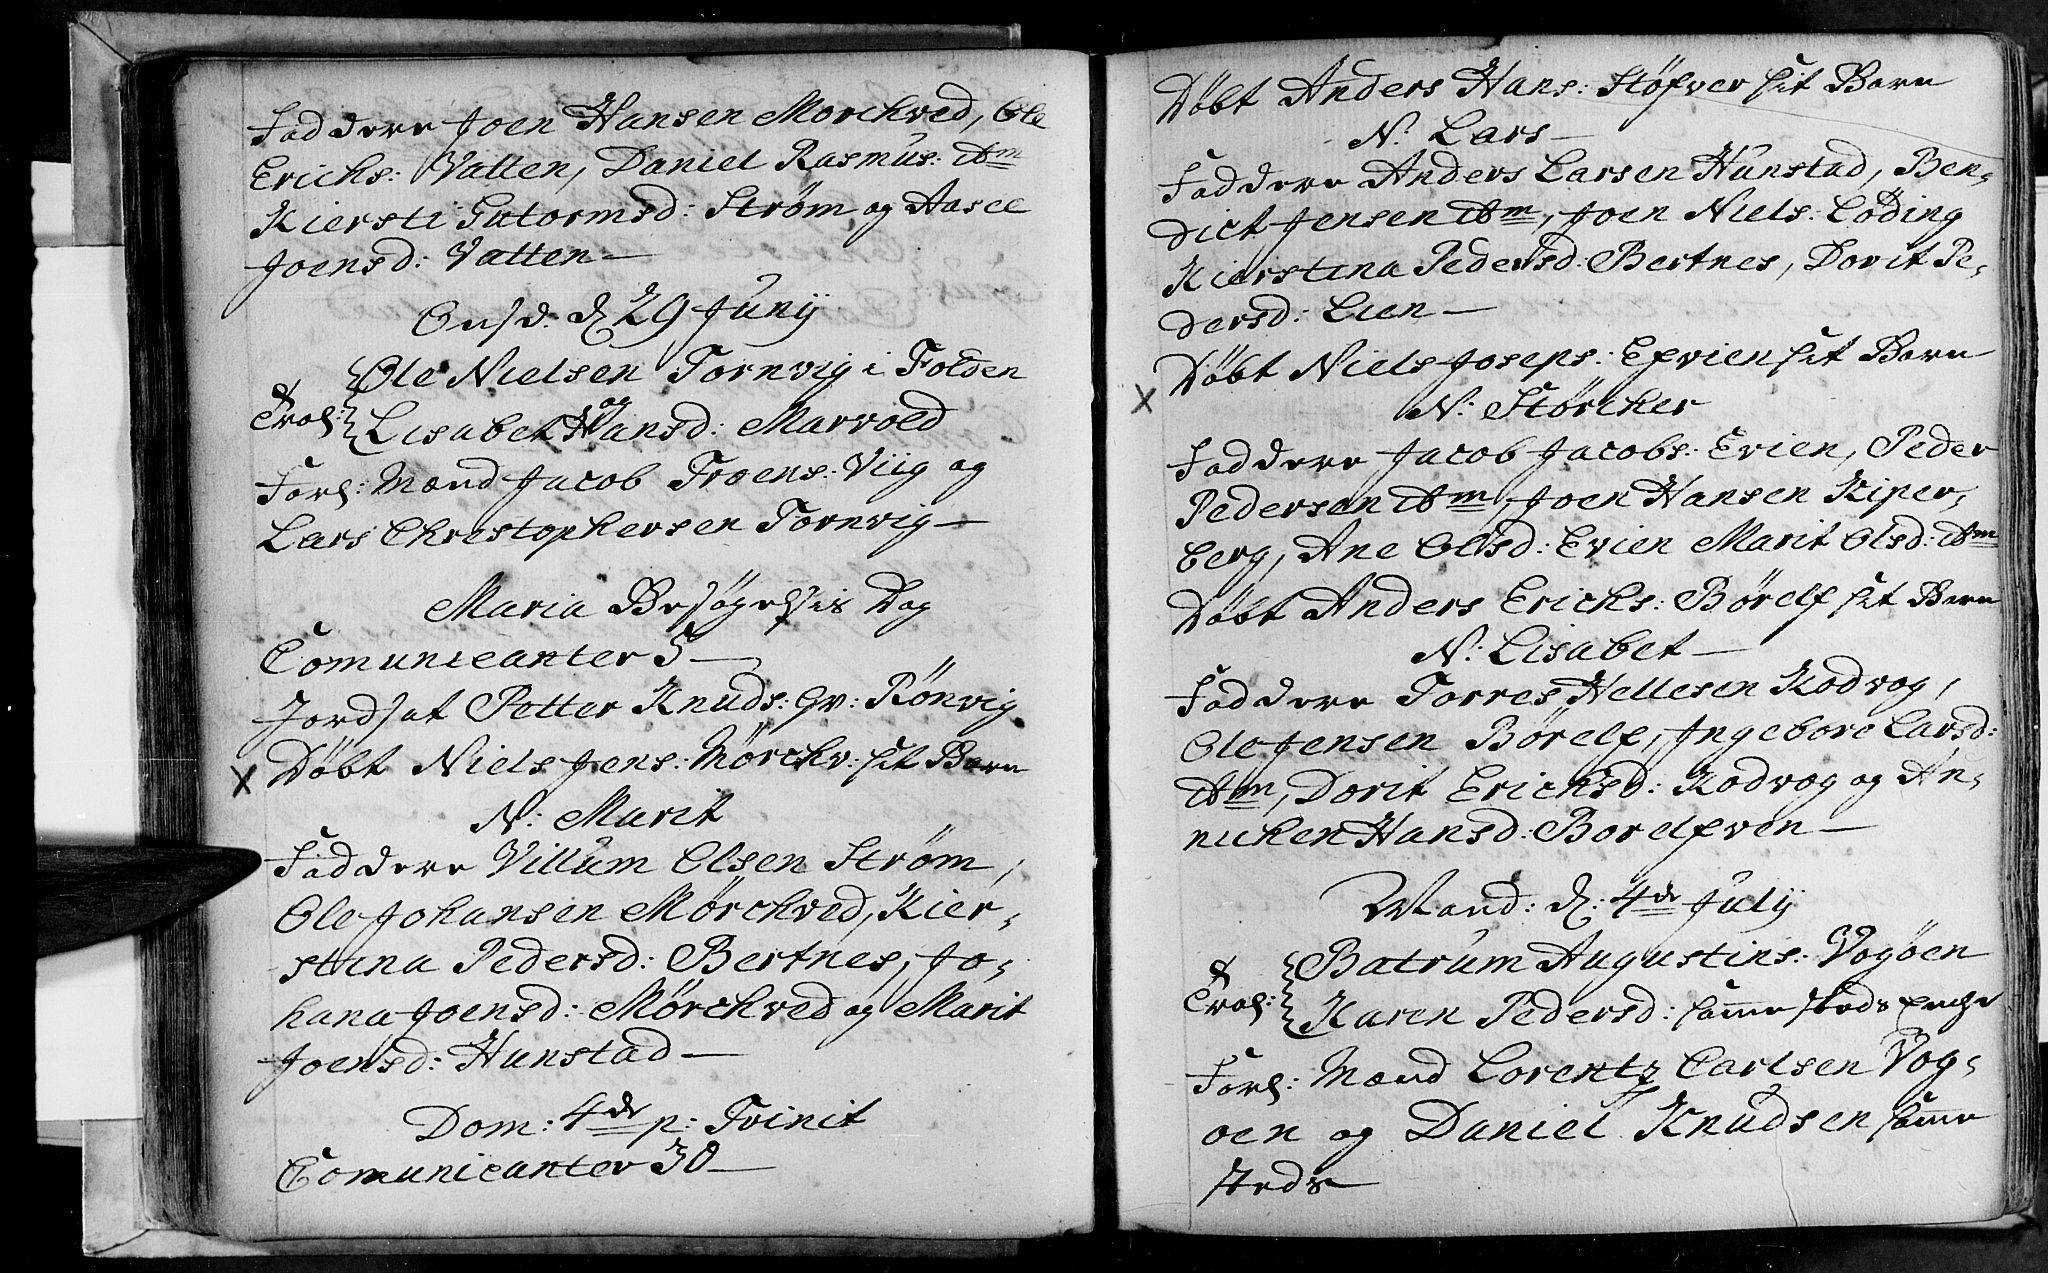 Faddere Joen Hansen Morchved, Ole
Erichs: Vatten, Daniel Rasmus: ibm
Kiersti Gutormsd: Strøm og Aasel
Joensd: Vatten —
Onsd: d 29 Junij
Ole Nielsen Tornvig i Folden
Trol: og
Lisabet Hansd: Marvold
Forl: Mænd Jacob Troens: Viig og
Lars Christophersen Tornvig —
Maria Besøgelsis Dag
Comunicanter 5 —
Jordsat Petter Knuds: Gv: Rønvig
X Døbt Niels Jens: Mørchv: sit Barn
N: Marit
Faddere Villum Olsen Strøm,
Ole Johansen Mørchved, Kier-
stina Pedersd: Bertnes, Jo-
hana Joensd: Mørchved og Marit
Joensd: Hunstad —
Dom: 4de p: Trinit
Comunicanter 30 —
Døbt Anders Hans: Støfver sit Barn
N: Lars —
Faddere Anders Larsen Hunstad, Ben-
dict Jensen ibm, Joen Niels: Löding
Kierstina Pedersd: Bertnes, Dorit Pe-
dersd: Lien —
X Døbt Niels Joseps: Efvien sit Barn
N: Størcker
Faddere Jacob Jacobs: Evien, Peder
Pedersen ibm, Joen Hansen Kiper-
berg, Ane Olsd: Evien Marit Olsd: ibm
Døbt Anders Erichs: Børelf sit Barn
N: Lisabet —
Faddere Torres Hellesen Kodvog,
Ole Jensen Børelf, Ingebore Larsd:
ibm, Dorit Erichsd: Kodvog og An-
nichen Hansd: Borelfven —
Mand: d: 4de Julij
Batrum Augustins: Vogøen
Trol:
Karen Pedersd: samme steds
Forl: Mænd Lorentz Carlsen Vog-
øen og Daniel Knudsen samme
steds —